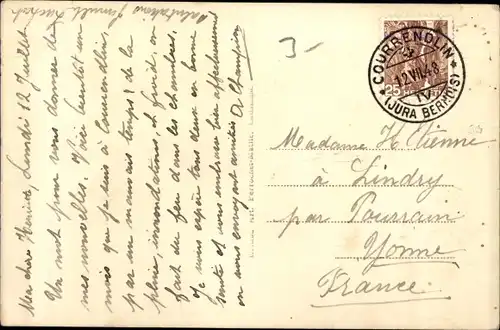 Ma chère Henriette, Lundi 12 Juillet
Un mot pour vous donner de
mes nouvelles. Voici bientôt un
mois que je suis à Courrendlin,
par un mauvais temps; de la
pluie, inondations, et froid, on
fait du feu dans les chambres.
Je vous espère tous deux en bonne
santé et vous embrasse bien affectueusement
en vous envoyant amitiés A Champion
3-
COURRENDLIN
12.VII.48
IV
(JURA BERNOIS)
25
Madame H Etienne
à Lindry
par Pourrain
Yonne
France.